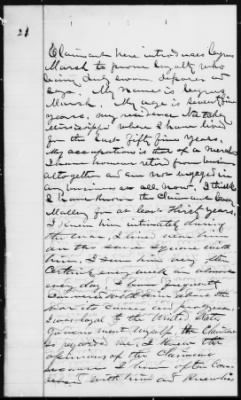 21
Claimant here introduces Cyrus
Marsh to prove loyalty who
being duly sworn deposes and
says. My name is Cyrus
Marsh. My age is seventy five
years, my residence Natchez
Mississippi where I have lived
for the last fifty five years
My occupation is that of a
I have however retired from business
altogether and am not engaged in
any business at all now. I think
I have known the Claimant
for at least thirty years,
I knew him intimately during
the war, I lived near him
on the same square with
him, I seen him very often
certainly every week an almost
every day, I have frequently
conversed with him about the
war its causes and progress.
I was loyal to the United States
Government myself, the Claimant
so regarded me, I knew the
opinions of the Claimant
because I have often
with him and